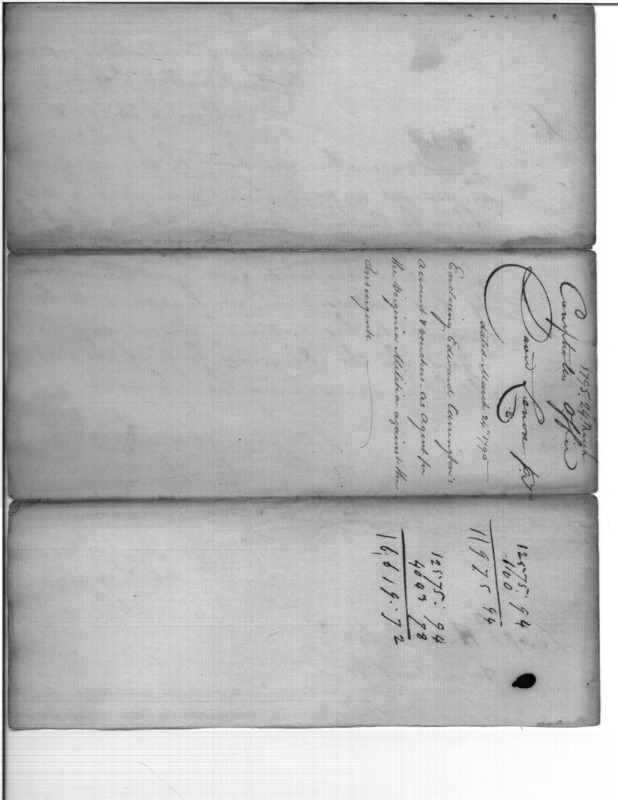 1795. 24 March
Comptroller Office
David Lenox
dated March 24th 1795
Enclosing Edward Carrington's
account & vouchers - as agent for
the Virginia Militia against the
Insurgents.
12575.94
600
11975 94
12575.94
4043 78
16.619.72